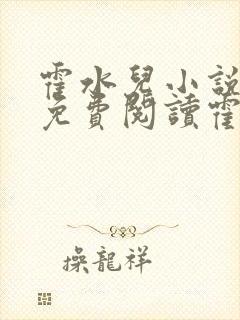 霍水兒小說
免費閱讀霍
操龍祥